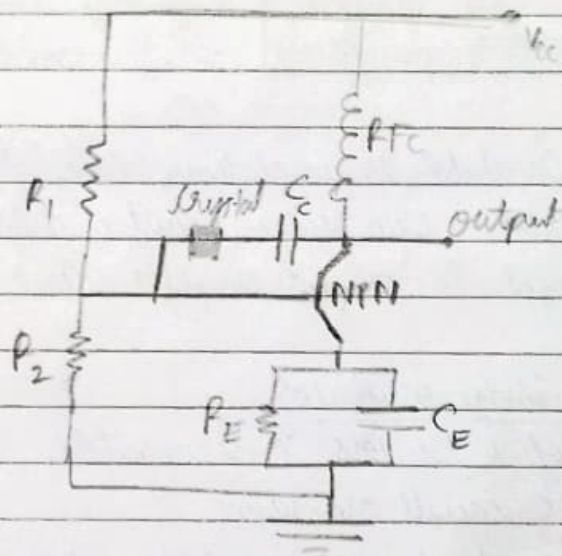 Vcc
RFC
R1
Crystal Cc
output
NPN
R2
RE CE